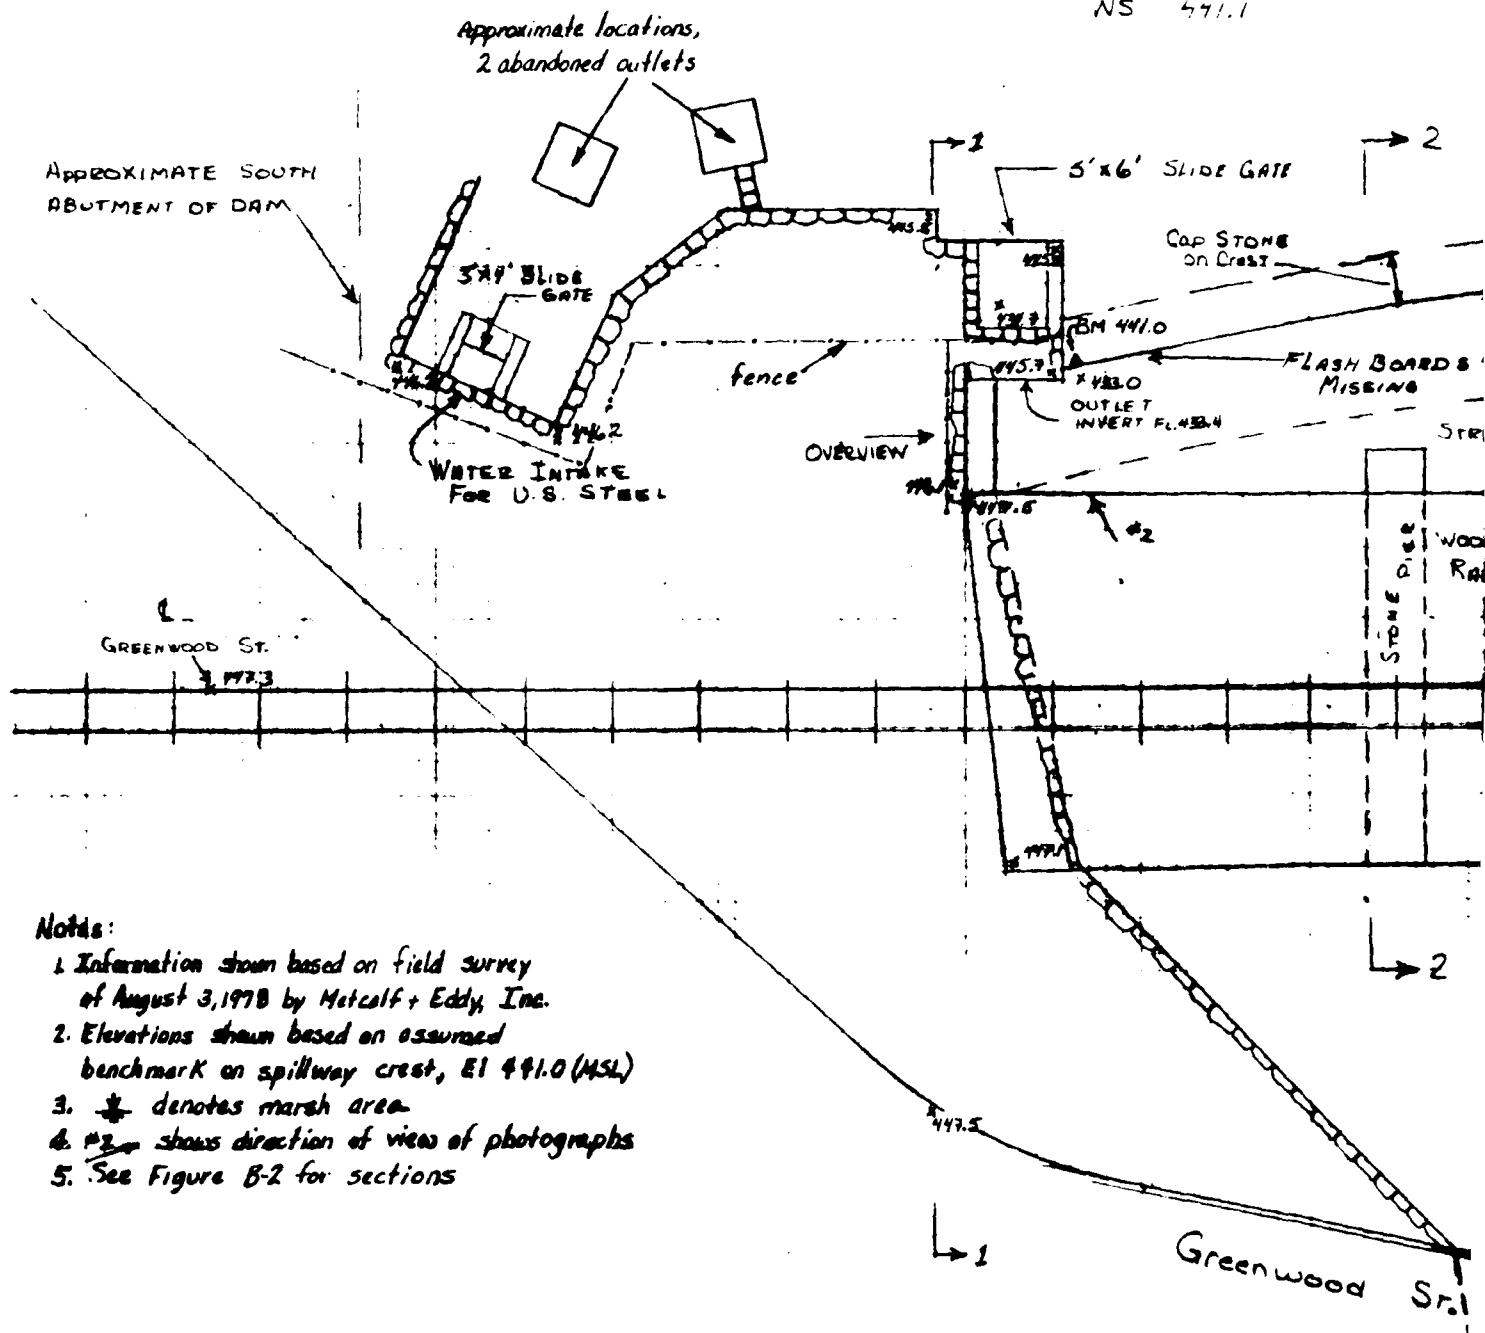 NS 441.1
Approximate locations,
2 abandoned outlets
1
2
APPROXIMATE SOUTH
ABUTMENT OF DAM
5'x6' SLIDE GATE
CAP STONE
ON CREST
SLIDE
GATE
BM 441.0
FLASH BOARDS
MISSING
fence
445.7
433.0
OUTLET
INVERT
OVERVIEW
446.2
WATER INTAKE
FOR U.S. STEEL
#2
STONE PIER
GREENWOOD ST.
447.3
447.1
Notes:
1. Information shown based on field survey
of August 3, 1978 by Metcalf + Eddy, Inc.
2. Elevations shown based on assumed
benchmark on spillway crest, El 441.0 (MSL)
3. denotes marsh area
4. #2 shows direction of view of photographs
5. See Figure B-2 for sections
2
447.5
1
Greenwood St.